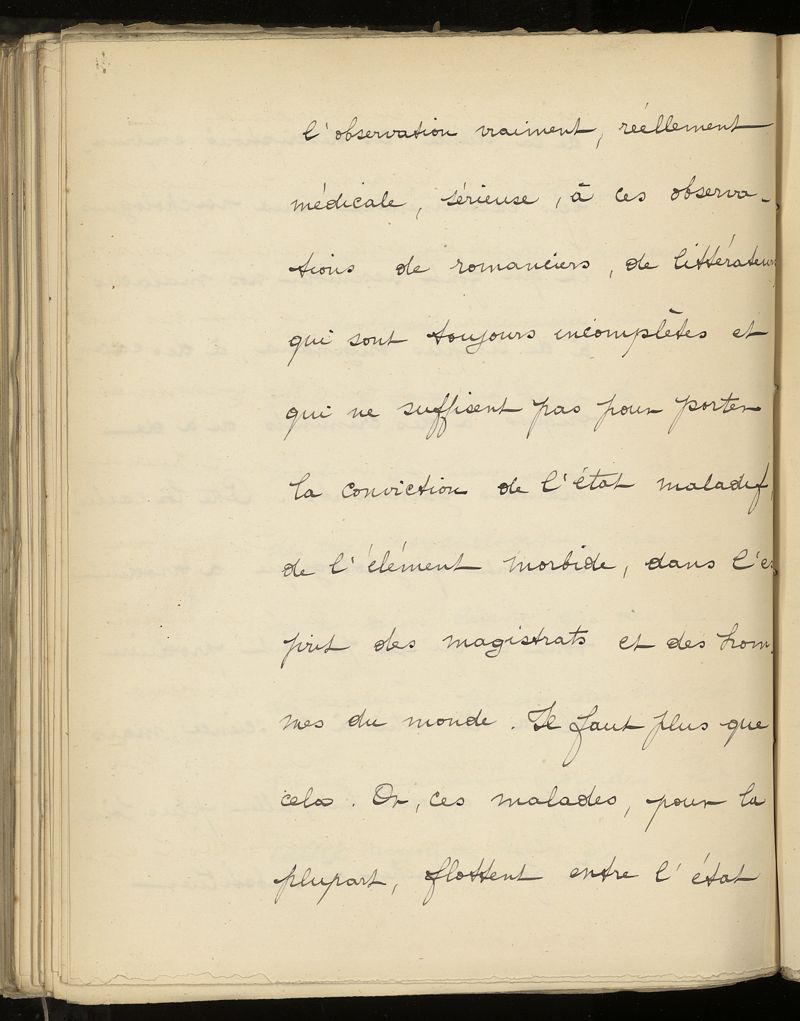 l'observation vraiment, réellement
médicale, sérieuse, à ces observa-
tions de romanciers, de littérateurs
qui sont toujours incomplètes et
qui ne suffisent pas pour porter
la conviction de l'état maladif,
de l'élément morbide, dans l'es-
prit des magistrats et des hom-
mes du monde. Il faut plus que
cela. Or, ces malades, pour la
plupart, flottent entre l'état